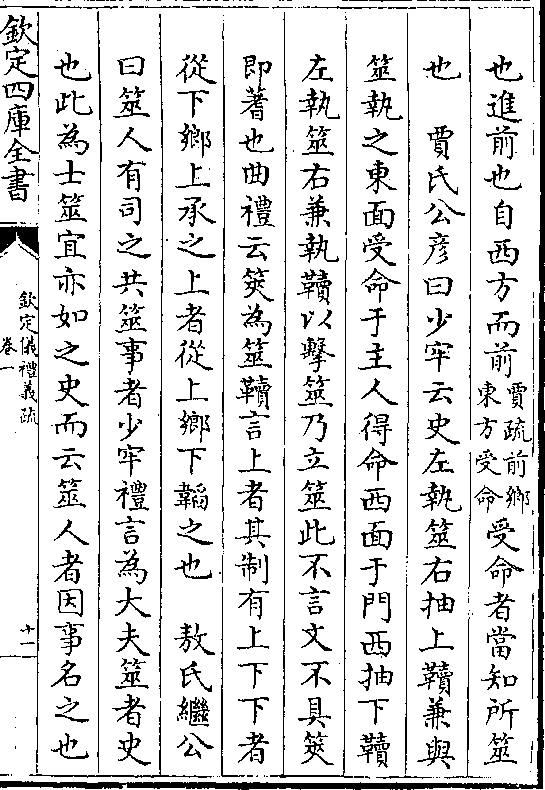 也進前也自西方而前賈疏前鄉東方受命受命者當知所筮
也　賈氏公彦曰少牢云史左執筮右抽上韇兼與
筮執之東面受命于主人得命西面于門西抽下韇
左執筮右兼執韇以擊筮乃立筮此不言文不具筴
即蓍也曲禮云筴為筮韇言上者其制有上下下者
從下鄉上承之上者從上鄉下韜之也　敖氏繼公
曰筮人有司之共筮事者少牢禮言為大夫筮者史
也此為士筮宜亦如之史而云筮人者因事名之也
欽定四庫全書
欽定儀禮義疏
卷一
十一